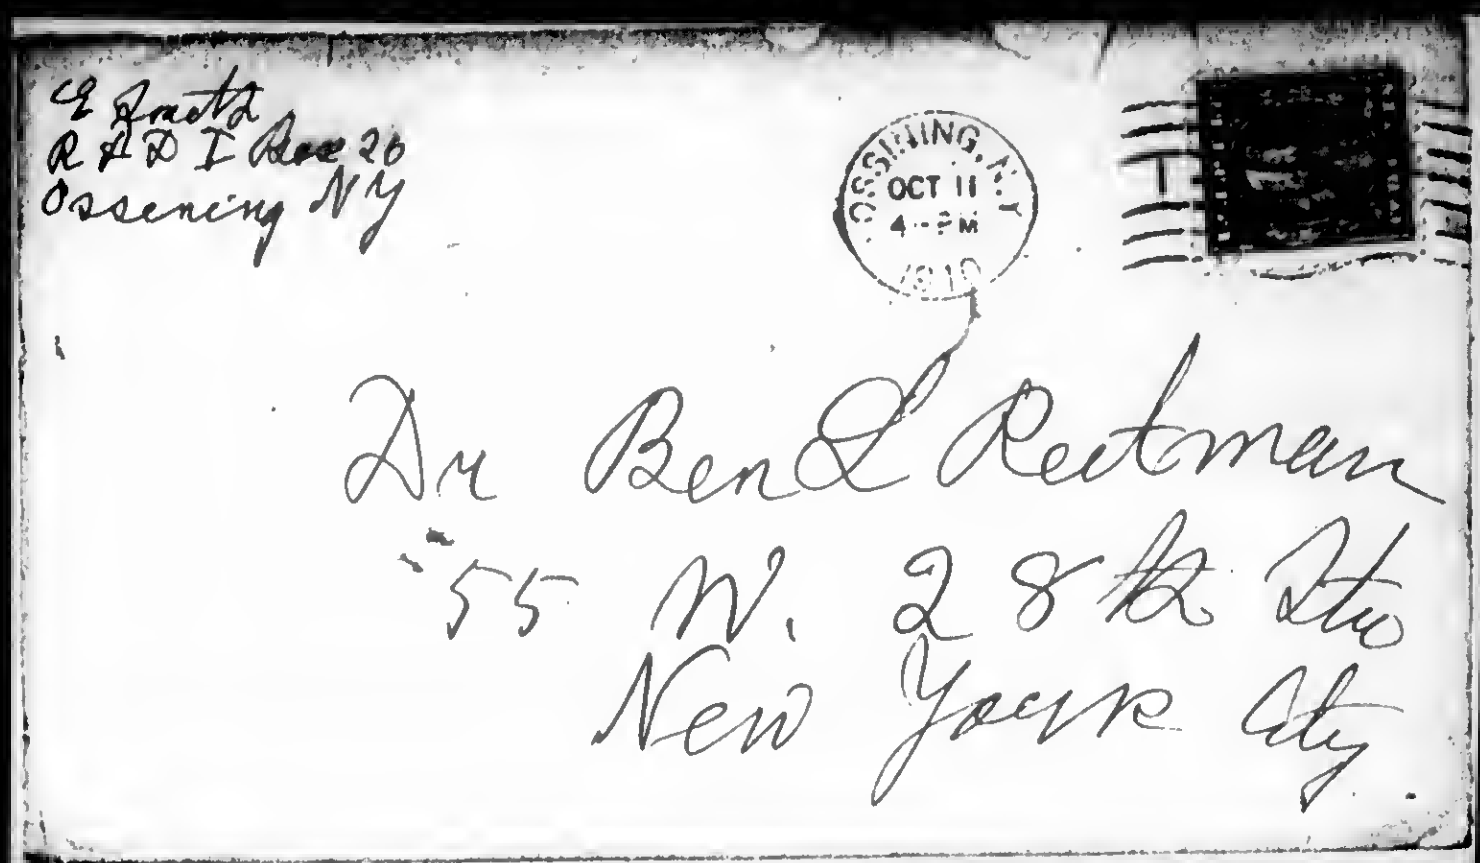 E Smith
R F D I Box 26
Ossening NY
OSSINING, N.Y.
OCT 11
4 - PM
1910
Dr Ben L Reitman
55 W. 28th Str
New York City